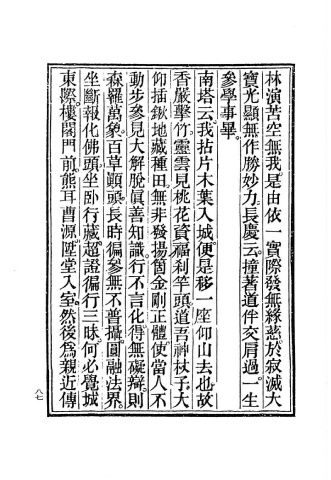 林演苦空無我是由依一實際發無緣慈於寂滅大
寶光顯無作勝妙力長慶云撞著道伴交肩過一生
參學事畢
南塔云我拈片木葉入城便是移一座仰山去也故
香嚴擊竹靈雲見桃花資福刹竿頭道吾神杖子大
仰插鍬地藏種田無非發揚箇金剛正體使當人不
動步參見大解脫眞善知識行不言化得無礙辯則
森羅萬象百草顚頭長時徧參無不普攝圓融法界
坐斷報化佛頭坐卧行藏超證徧行三昧何必覺城
東際樓閣門前熊耳曹源陞堂入室然後爲親近傳
八七